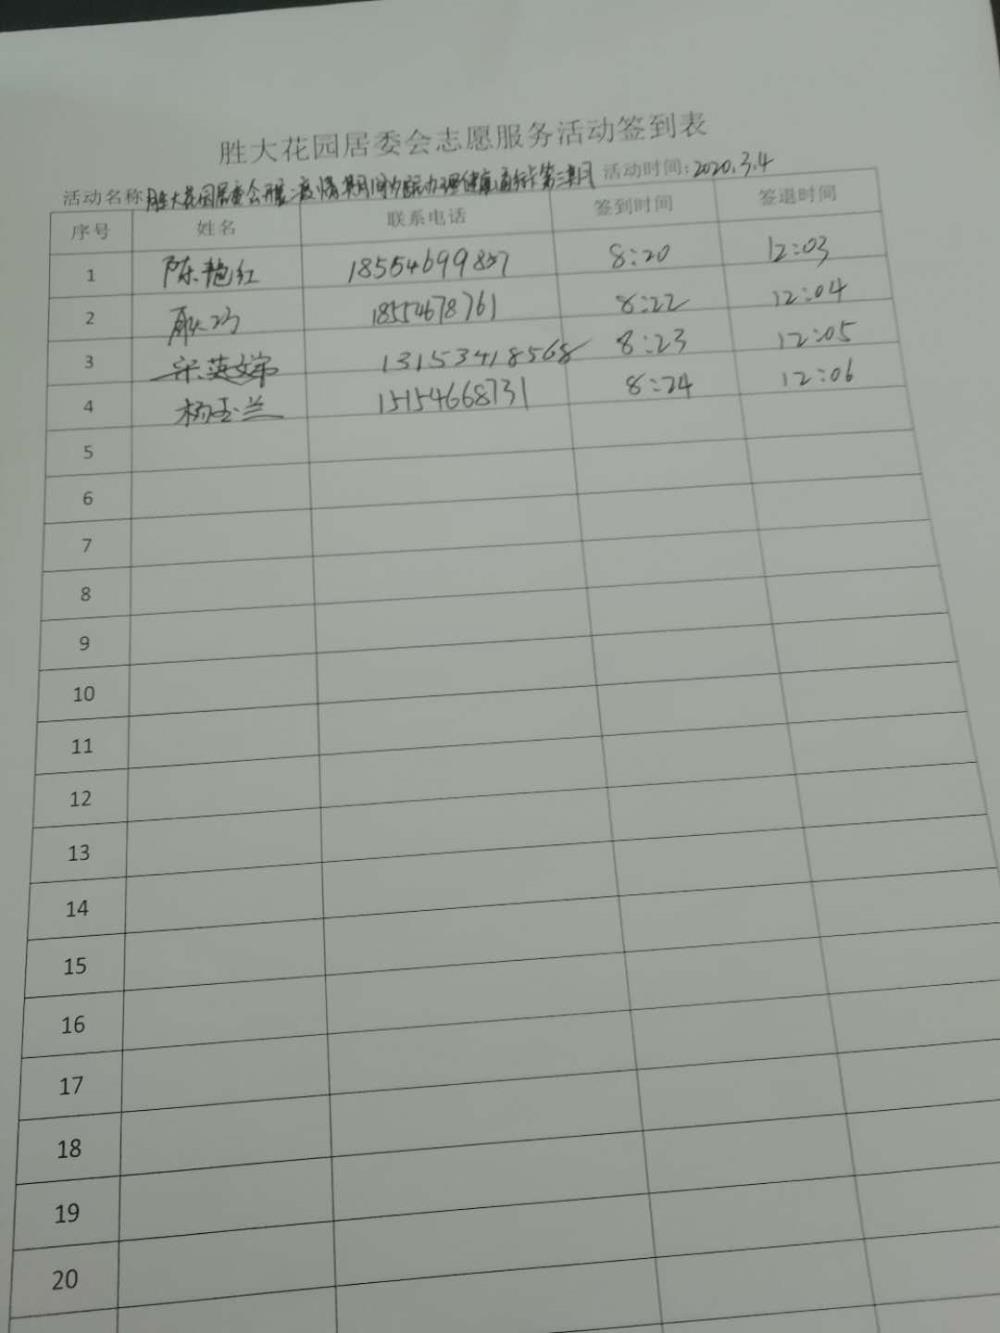 胜大花园居委会志愿服务活动签到表
活动名称 胜大花园居委会开展"疫情期间"办理健康通行卡第三期 活动时间: 2020.3.4
序号 姓名 联系电话 签到时间 签退时间
1 陈艳红 18554699857 8:20 12:03
2 18554678761 8:22 12:04
3 宋英文 13153418568 8:23 12:05
4 杨玉兰 15154668731 8:24 12:06
5
6
7
8
9
10
11
12
13
14
15
16
17
18
19
20